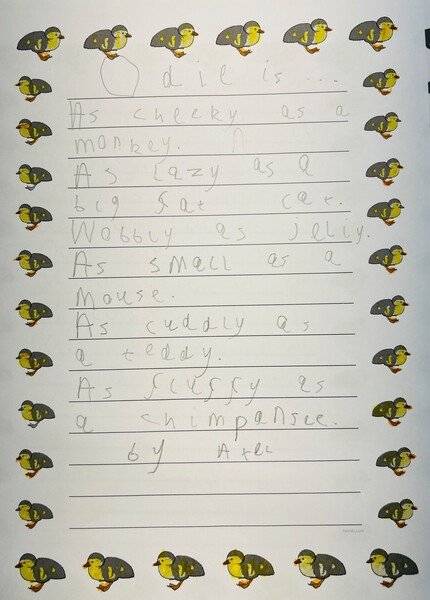 Odie is ...
As cheeky as a
monkey.
As lazy as a
big fat cat.
Wobbly as jelly.
As small as a
mouse.
As cuddly as
a teddy.
As fluffy as
a chimpansee.
by Axel